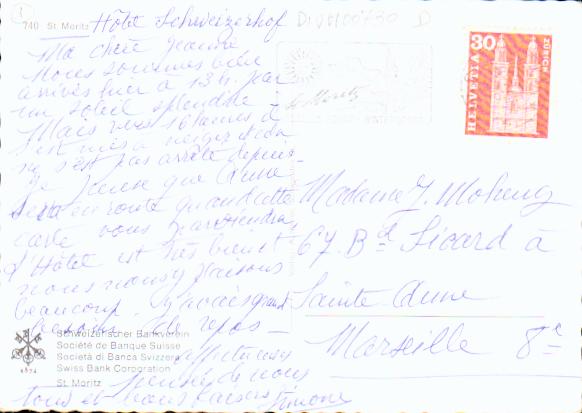 740 St. Moritz Hôtel Schweizerhof
Ma chère Jeanne
Nous sommes bien
arrivés hier à 13 h. par
un soleil splendide -
Mais vers 16 heures il
s'est mis à neiger et ça
ne s'est pas arrêté depuis -
Je pense que Anne
sera en route quand cette
carte vous parviendra
l'Hôtel est très bien et
nous nous y plaisons
beaucoup. J'avais grand
besoin de repos -
affectueuses
pensées de nous
tous et bons baisers Simone
Schweizerischer Bankverein
Société de Banque Suisse
Società di Banca Svizzera
Swiss Bank Corporation
St. Moritz
1872
St. Moritz
30
HELVETIA
ZÜRICH
Madame J.
67 Bd Sicard à
Sainte Anne
Marseille 8e